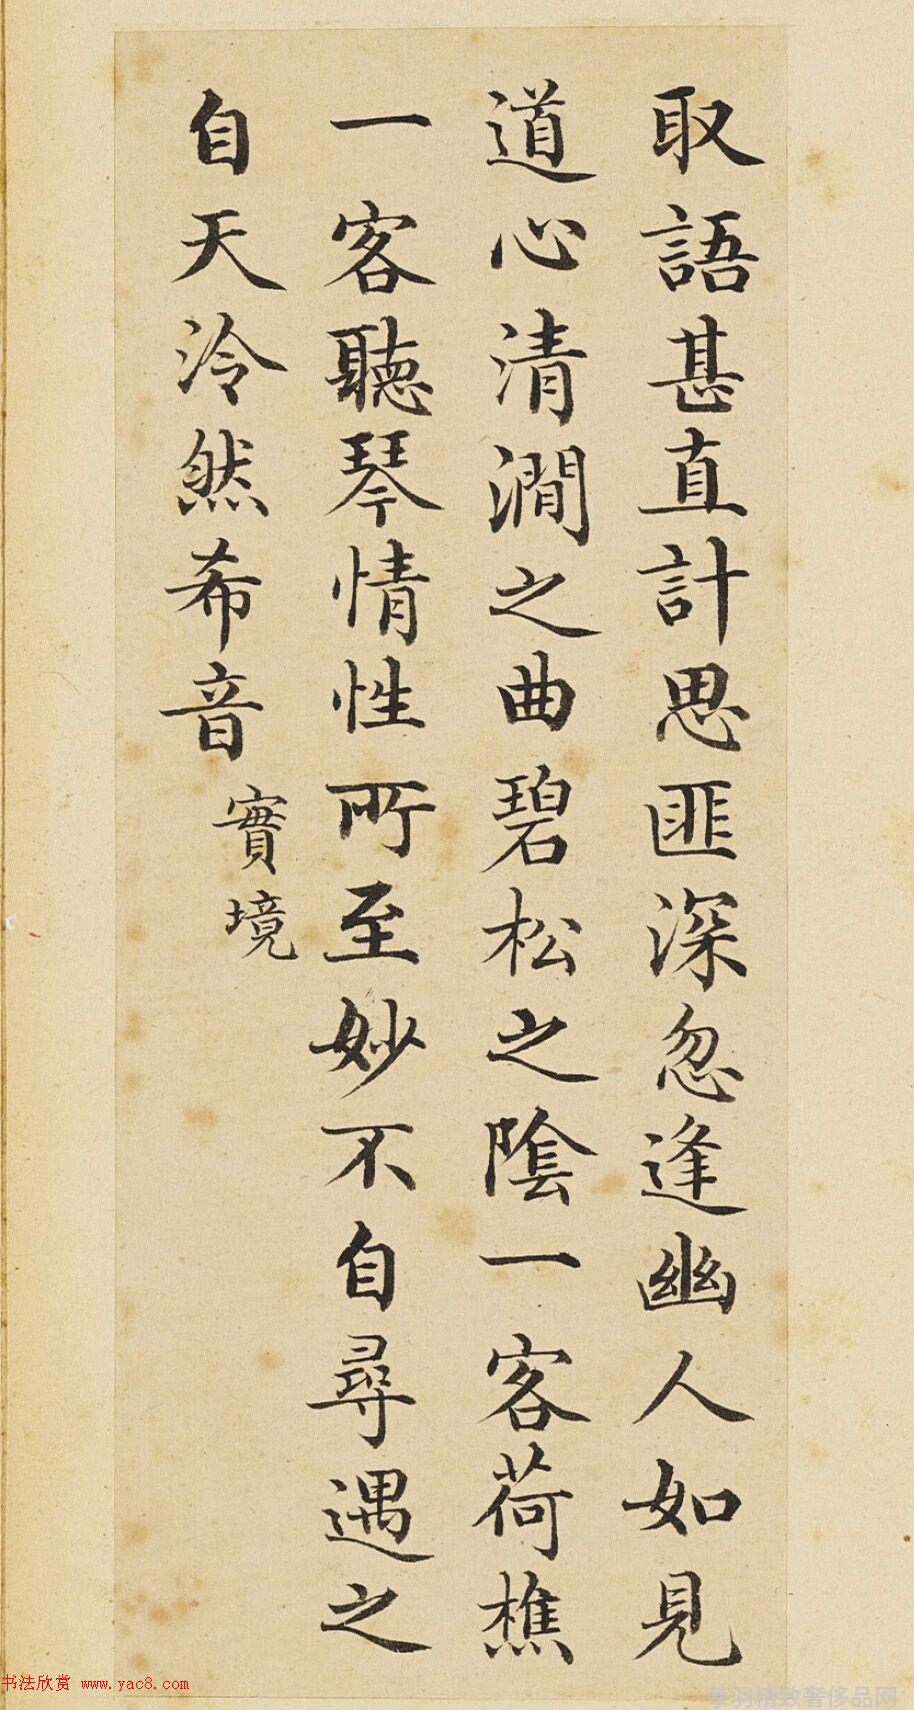 取語甚直計思匪深忽逢幽人如見
道心清澗之曲碧松之陰一客荷樵
一客聽琴情性所至妙不自尋遇之
自天泠然希音
實境
书法欣赏 www.yac8.com
羽精致奢侈品网